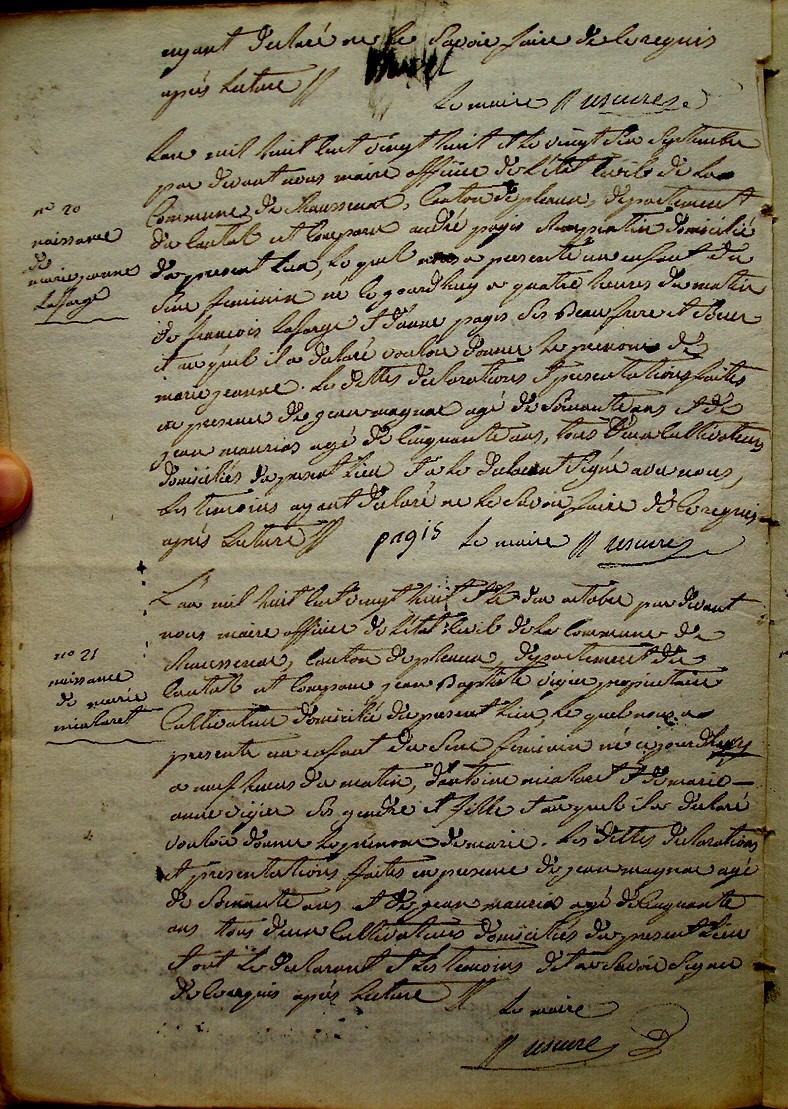 ayant déclaré ne le Savoir faire de ce requis
après Lecture //
Le maire
n° 20
naissance
de
marie jeanne
Lafarge
Lan mil huit Cent vingt huit et le vingt Six Septembre
par devant nous maire officier de L'état Civile de La
Commune de Chaussenac, Canton de pleaux, département
du Cantal est Comparu andré pagis domicilié
du present Lieu, Le quel nous a presenté un enfant du
Sexe feminin né ce jourdhuy a quatre heures du matin
de françois Lafarge et d'anne pagis Ses Beaufrere et Sœur
et au quel il a déclaré vouloir donner Le prenom de
marie jeanne. Les dittes déclarations et presentations faites
en presence de jean magnac agé de Soixante ans et de
jean maurias agé de Cinquante ans, tous deux Cultivateurs
domiciliés du present Lieu et a Le déclarant Signé avec nous,
Les temoins ayant déclaré ne Le Savoir faire de ce requis
après Lecture // pagis Le maire
n° 21
naissance
de marie
mialaret
L'an mil huit Cent vingt huit et le dix octobre par devant
nous maire officier de L'état Civile de La Commune de
Chaussenac, Canton de pleaux, département du
Cantal est Comparu jean Baptiste vigier propriétaire
Cultivateur domicilié du present Lieu, Le quel nous a
presenté un enfant du Sexe feminin né ce jourdhuy
a neuf heures du matin, d'antoine mialaret et de marie
anne vigier Ses gendre et fille et au quel il a déclaré
vouloir donner Le prenom de marie. Les dittes déclarations
et presentations faites en presence de jean magnac agé
de Soixante ans et de jean maurias agé de Cinquante
ans tous deux Cultivateurs domiciliés du present Lieu
et ont Le déclarant et Les temoins dit ne Savoir Signer
de ce requis après Lecture //
Le maire